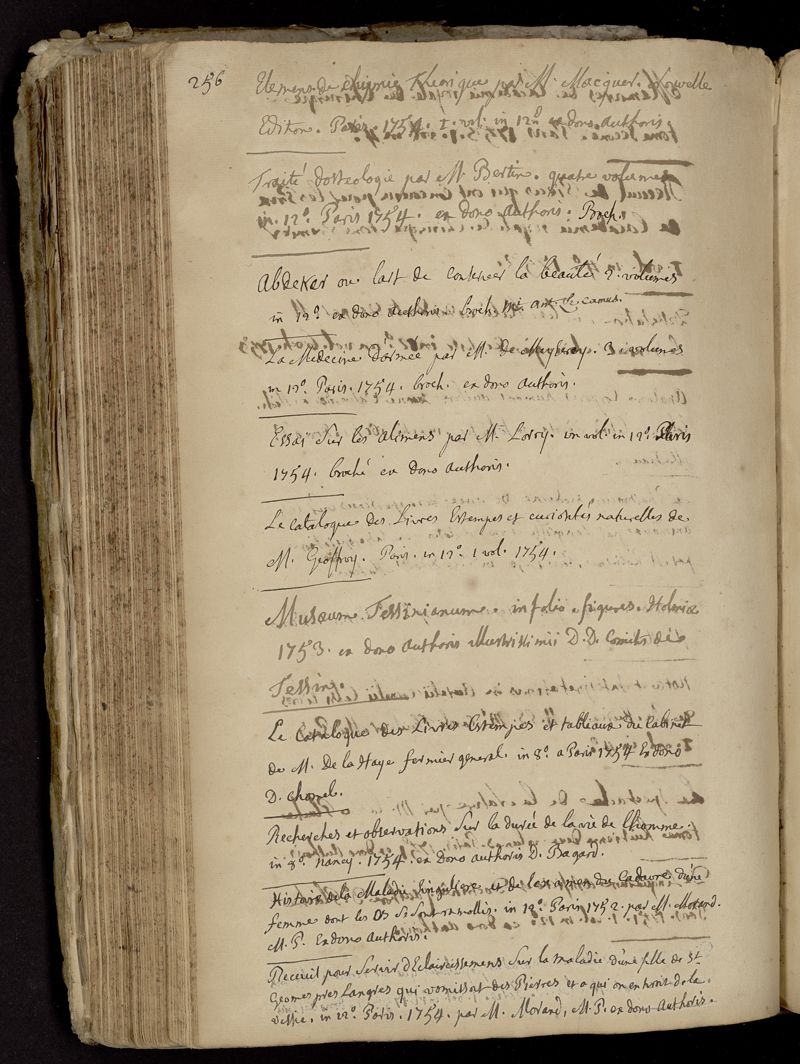 256
Elemens de chimie Theorique par M. Macquer. Nouvelle
Edition. Paris. 1754. 1. vol. in 12º ex dono authoris.
Traité d'osteologie par M. Bertin. quatre volumes
in. 12º. Paris 1754. ex dono authoris. Broch.
Abdeker ou l'art de conserver la beauté 2. volumes
in 12º. ex dono authoris broch. ant. le camus.
La Medecine d'armée par M. de Meyserey. 3. volumes
in 12º. Paris. 1754. broch. ex dono authoris.
Essai Sur les alimens par M. Lorry. un vol. in 12º. Paris
1754. broché ex dono authoris.
Le catalogue des Livres Estempes et curiosités naturelles de
M. Geoffroy. Paris. in 12º. 1 vol. 1754.
Musaeum Tessinianum. in folio. figures. Holmiae
1753. ex dono authoris Illustrissimi D.D. Comitis de
Tessin.
Le Catalogue des Livres Estempes et tableaux du Cabinet
de M. de la Haye fermier general. in 8º. a Paris 1754 Ex dono
D. Chomel.
Recherches et observations Sur la durée de la vie de l'homme.
in 8º. Nancy. 1754. ex dono authoris D. Bagard.
Histoire de la Maladie Singuliere et de l'examen du Cadavre d'une
femme dont les Os Se Sont ramollis. in 12º. Paris 1752. par M. Morand.
M. P. Ex dono authoris.
Receuil pour Servir d'Eclaircissemens Sur la maladie d'une fille de St
Geomes pres Langres qui vomissoit des Pierres et a qui on en tiroit de la
vessie. in 12º. Paris. 1754. par M. Morand, M. P. ex dono authoris.